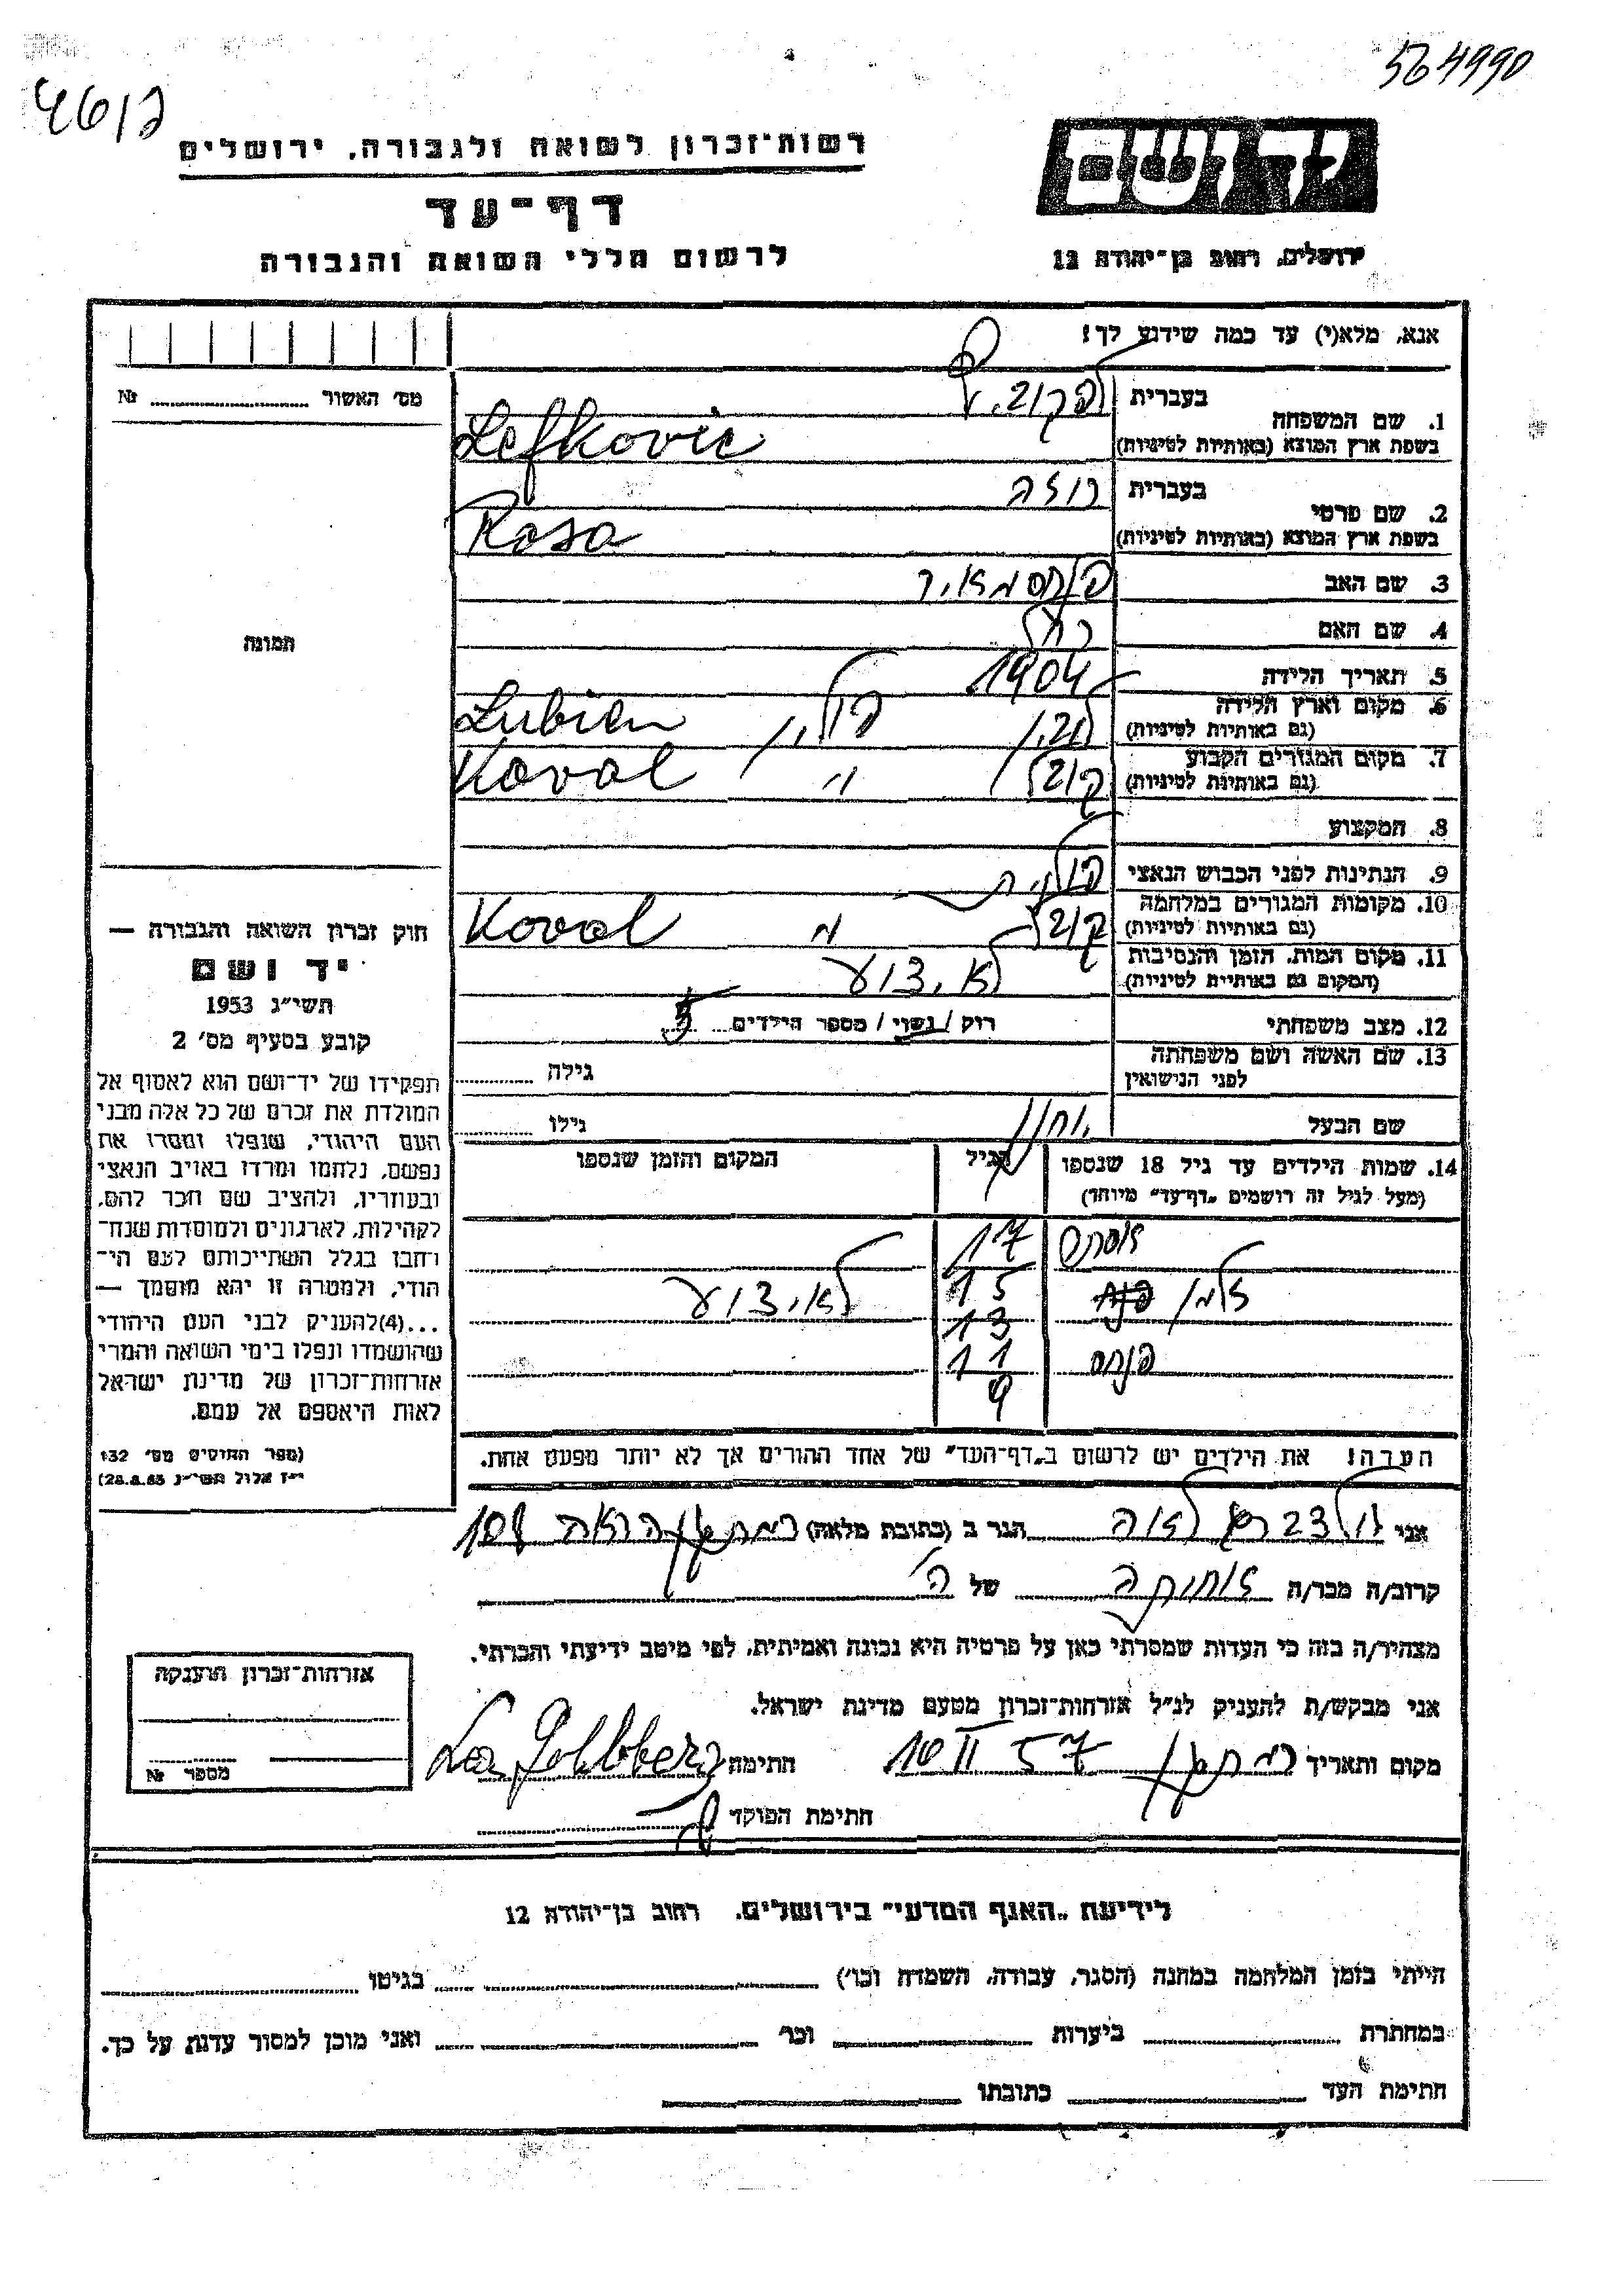 564990
4612
יד ושם
רשות־זכרון לשואה ולגבורה, ירושלים
דף־עד
לרשום חללי השואה והגבורה
ירושלים, רחוב בן־יהודה 12
אנא, מלא(י) עד כמה שידוע לך!
מס׳ האשור Nr
1. שם המשפחה
בעברית לפקוביץ
בשפת ארץ המוצא (באותיות לטיניות) Lefkovic
2. שם פרטי
בעברית רוזה
בשפת ארץ המוצא (באותיות לטיניות) Rosa
3. שם האב פנחס מאיר
4. שם האם רחל
5. תאריך הלידה 1904
6. מקום וארץ הלידה
(גם באותיות לטיניות) לובין פולין Lubien
7. מקום המגורים הקבוע
(גם באותיות לטיניות) קובל " Koval
8. המקצוע
9. הנתינות לפני הכבוש הנאצי פולנית
10. מקומות המגורים במלחמה
(גם באותיות לטיניות) קובל " Koval
11. מקום המות, הזמן והנסיבות
(המקום גם באותיות לטיניות) לא ידוע
12. מצב משפחתי רווק / נשוי / מספר הילדים 5
13. שם האשה ושם משפחתה
לפני הנישואין גילה
שם הבעל גילו
14. שמות הילדים עד גיל 18 שנספו
(מעל לגיל זה רושמים „דף־עד" מיוחד)
הגיל
המקום והזמן שנספו
אסתר 17
זלמן 15 לא ידוע
13
פנחס 11
9
תמונה
חוק זכרון השואה והגבורה —
יד ושם
תשי״ג 1953
קובע בסעיף מס׳ 2
תפקידו של יד־ושם הוא לאסוף אל
המולדת את זכרם של כל אלה מבני
העם היהודי, שנפלו ומסרו את
נפשם, נלחמו ומרדו באויב הנאצי
ובעוזריו, ולהציב שם וזכר להם,
לקהילות, לארגונים ולמוסדות שנח־
רבו בגלל השתייכותם לעם הי־
הודי, ולמטרה זו יהא מוסמך —
...(4) להעניק לבני העם היהודי
שהושמדו ונפלו בימי השואה והמרי
אזרחות־זכרון של מדינת ישראל
לאות היאספם אל עמם.
(ספר החוקים מס׳ 132
י״ז אלול תשי״ג 28.8.53)
הערה! את הילדים יש לרשום ב„דף־העד" של אחד ההורים אך לא יותר מפעם אחת.
אני גולדברג לאה הגר ב (כתובת מלאה) רמת גן הראה 108
קרוב/ה מכר/ה של
מצהיר/ה בזה כי העדות שמסרתי כאן על פרטיה היא נכונה ואמיתית, לפי מיטב ידיעתי והכרתי.
אני מבקש/ת להעניק לנ״ל אזרחות־זכרון מטעם מדינת ישראל.
מקום ותאריך רמת גן 10 II 57 חתימה Lea Goldberg
חתימת הפוקד
אזרחות־זכרון הוענקה
מספר Nr
לידיעת „האגף המדעי" בירושלים. רחוב בן־יהודה 12
הייתי בזמן המלחמה במחנה (הסגר, עבודה, השמדה וכו׳) בגיטו
במחתרת ביערות וכו׳ ואני מוכן למסור עדות על כך.
חתימת העד כתובתו